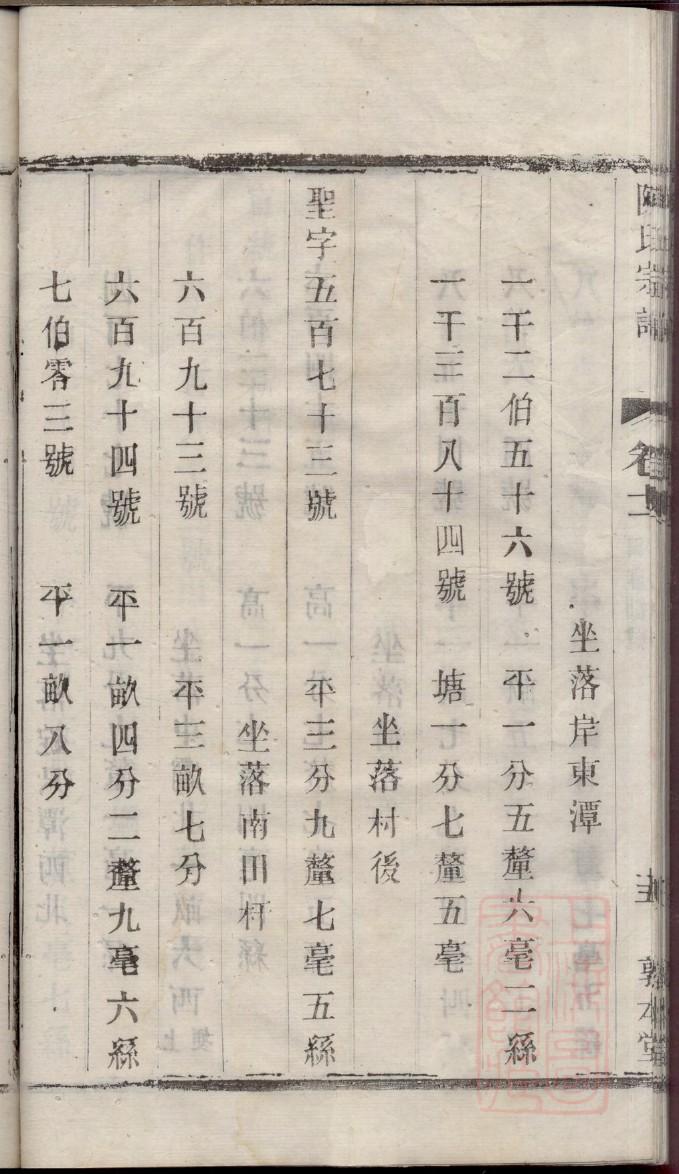 坐落岸東潭
一千二伯五十六號 平一分五釐六毫二絲
一千三百八十四號 塘一分七釐五毫
坐落村後
聖字五百七十三號 平三分九釐七毫五絲
坐落南田村
六百九十三號 平三畝七分
六百九十四號 平一畝四分二釐九毫六絲
七伯零三號 平一畝八分